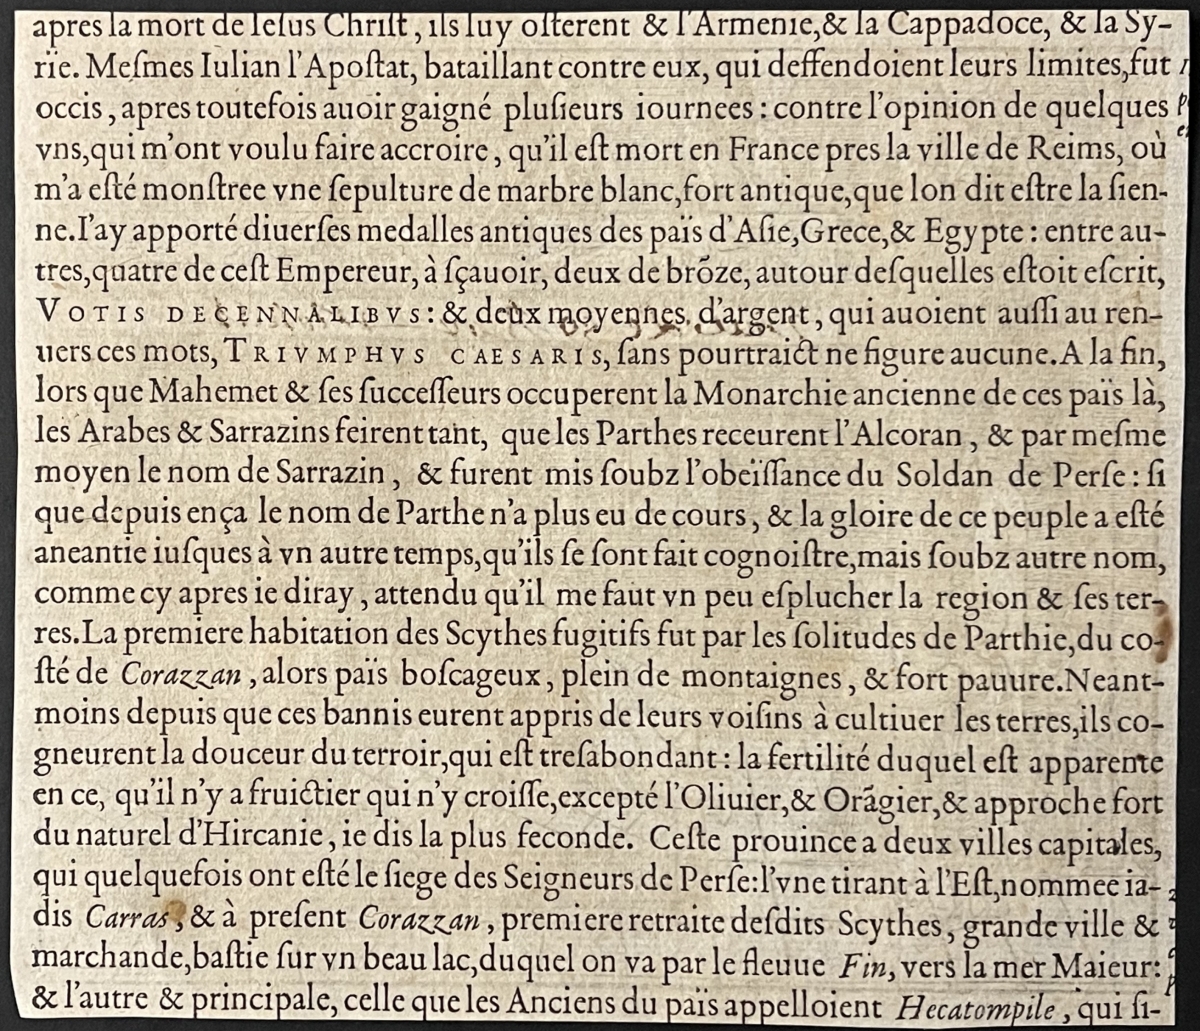 apres la mort de Ieſus Chriſt, ils luy oſterent & l'Armenie,& la Cappadoce, & la Sy-
rie. Meſmes Iulian l'Apoſtat, bataillant contre eux, qui deffendoient leurs limites,fut
occis, apres toutefois auoir gaigné pluſieurs iournees : contre l'opinion de quelques
vns,qui m'ont voulu faire accroire, qu'il eſt mort en France pres la ville de Reims, où
m'a eſté monſtree vne ſepulture de marbre blanc,fort antique,que lon dit eſtre la ſien-
ne.I'ay apporté diuerſes medalles antiques des païs d'Aſie,Grece,& Egypte : entre au-
tres,quatre de ceſt Empereur, à ſçauoir, deux de brõze, autour deſquelles eſtoit eſcrit,
VOTIS DECENNALIBVS: & deux moyennes d'argent, qui auoient auſſi au ren-
uers ces mots, TRIVMPHVS CAESARIS, ſans pourtraict ne figure aucune. A la fin,
lors que Mahemet & ſes ſucceſſeurs occuperent la Monarchie ancienne de ces païs là,
les Arabes & Sarrazins feirent tant, que les Parthes receurent l'Alcoran, & par meſme
moyen le nom de Sarrazin, & furent mis ſoubz l'obeïſſance du Soldan de Perſe : ſi
que depuis ença le nom de Parthe n'a plus eu de cours, & la gloire de ce peuple a eſté
aneantie iuſques à vn autre temps,qu'ils ſe ſont fait cognoiſtre,mais ſoubz autre nom,
comme cy apres ie diray, attendu qu'il me faut vn peu eſplucher la region & ſes ter-
res.La premiere habitation des Scythes fugitifs fut par les ſolitudes de Parthie,du co-
ſté de Corazzan, alors païs boſcageux, plein de montaignes, & fort pauure.Neant-
moins depuis que ces bannis eurent appris de leurs voiſins à cultiuer les terres,ils co-
gneurent la douceur du terroir,qui eſt treſabondant : la fertilité duquel eſt apparente
en ce, qu'il n'y a fruictier qui n'y croiſſe,excepté l'Oliuier,& Orãgier,& approche fort
du naturel d'Hircanie, ie dis la plus feconde. Ceſte prouince a deux villes capitales,
qui quelquefois ont eſté le ſiege des Seigneurs de Perſe:l'vne tirant à l'Eſt,nommee ia-
dis Carras, & à preſent Corazzan, premiere retraite deſdits Scythes, grande ville &
marchande,baſtie ſur vn beau lac,duquel on va par le fleuue Fin, vers la mer Maieur:
& l'autre & principale, celle que les Anciens du païs appelloient Hecatompile, qui ſi-